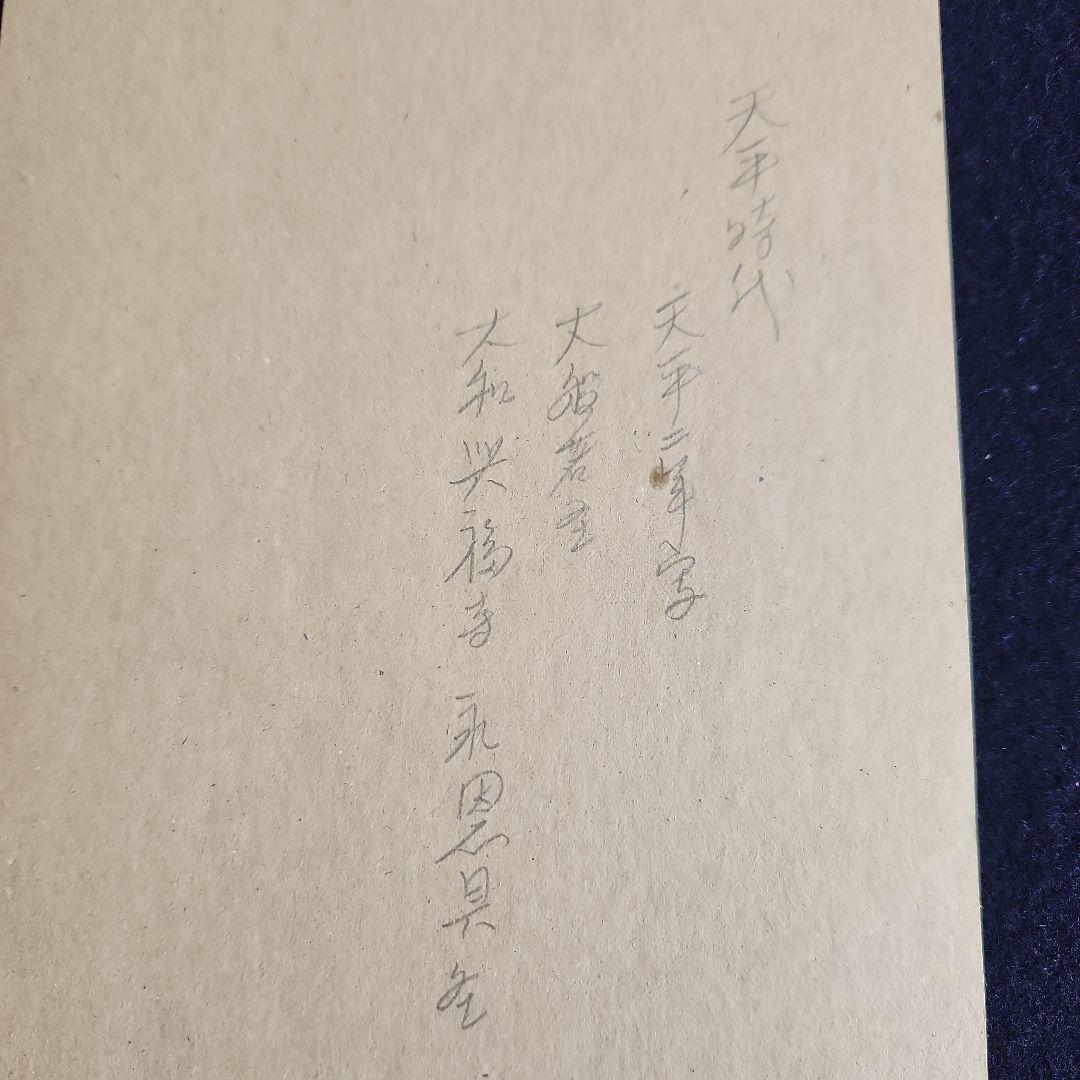 天平時代
天平二年写
大般若圣
大和興福寺 永恩具圣